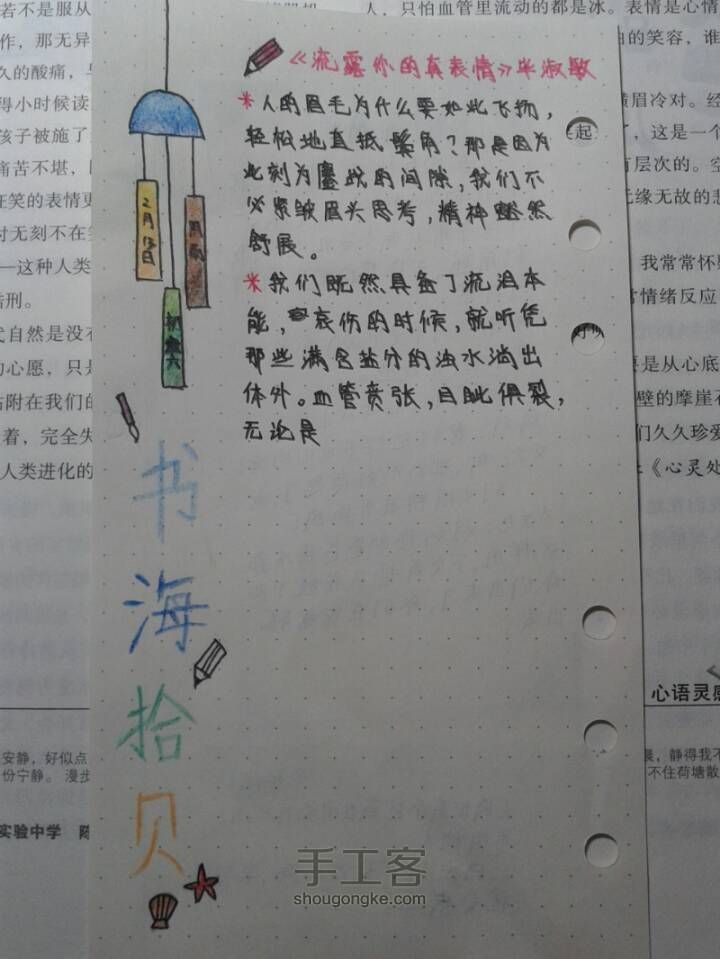 《流露你的真表情》毕淑敏
*人的眉毛为什么要如此飞扬，
轻松地直抵鬓角？那是因为
此刻为鏖战的间隙，我们不
必紧皱眉头思考，精神豁然
舒展。
*我们既然具备了流泪本
能，哀伤的时候，就听凭
那些满含盐分的浊水淌出
体外。血管贲张，目眦俱裂，
无论是
2月13日
书
海
拾
贝
起
好似
若不是服从
作，那无异
久的酸痛，
得小时候读
孩子被施了
痛苦不堪，
在笑的表情更
时无刻不在
——这种人类
酷刑。
自然是没有
的心愿，只是
占附在我们的
着，完全失
人类进化的
人，只怕血管里流动的都是冰。表情是心情
的笑容，谁
横眉冷对。经
了，这是一个
有层次的。空
无缘无故的悲
我常常怀
常情绪反应
要是从心底
壁的摩崖石
们久久珍爱
《心灵处
心语灵感
安静，好似点
份宁静。 漫步
实验中学 陈
晨，静得我不
不住荷塘散
手工客
shougongke.com